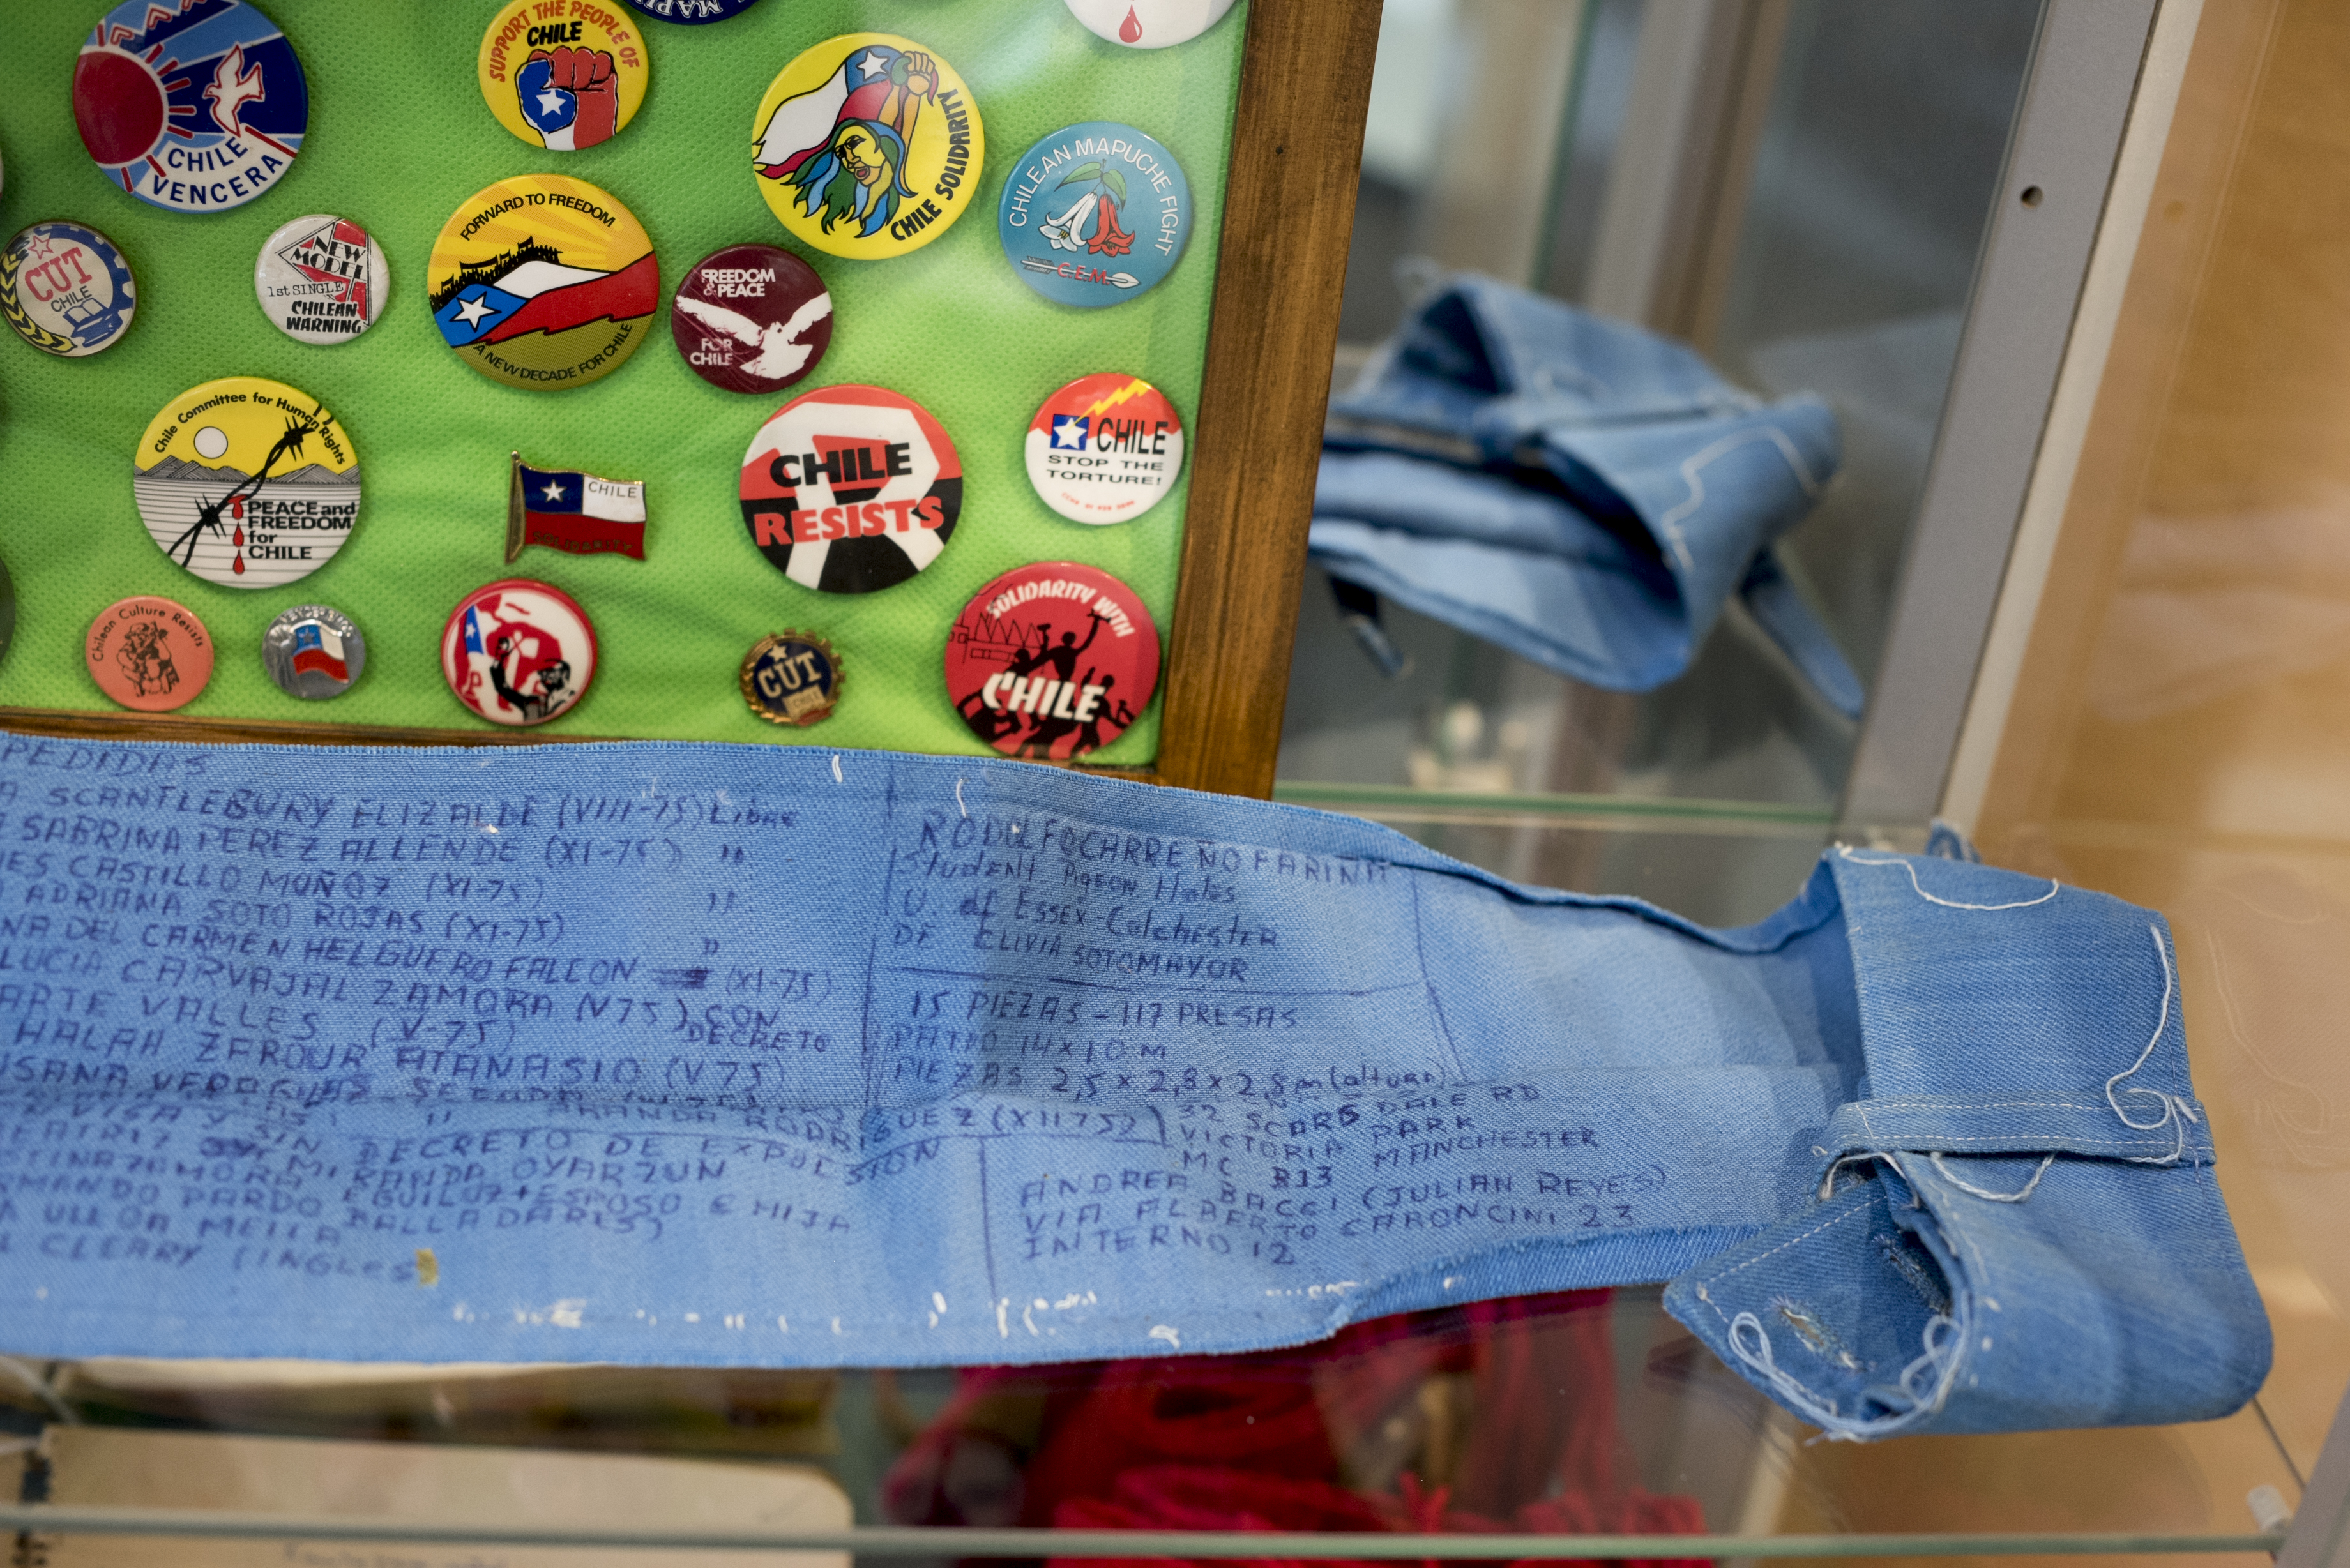 SUPPORT THE PEOPLE OF
CHILE
CHILE
VENCERA
CHILE SOLIDARITY
CHILEAN MAPUCHE FIGHT
C.E.M.
CUT
CHILE
NEW
MODEL
1st SINGLE
CHILEAN
WARNING
FORWARD TO FREEDOM
A NEW DECADE FOR CHILE
FREEDOM
& PEACE
FOR
CHILE
Chile Committee for Human Rights
PEACE and
FREEDOM
for
CHILE
CHILE
SOLIDARITY
CHILE
RESISTS
CHILE
STOP THE
TORTURE!
Chilean Culture Resists
CUT
CHILE
SOLIDARITY WITH
CHILE
PEDIDAS
A SCANTLEBURY ELIZALDE (VIII-75) Libre
SABRINA PEREZ ALLENDE (XI-75) "
ES CASTILLO MUÑOZ (XI-75)
ADRIANA SOTO ROJAS (XI-75) "
NA DEL CARMEN HELGUERO FALCON (XI-75) "
LUCIA CARVAJAL ZAMORA (V75) CON
ARTE VALLES (V-75) DECRETO
HALAH ZAROUR ATANASIO (V75)
SIN DECRETO DE EXPULSION
MIRANDA OYARZUN
MANDO PARDO EGUILUZ + ESPOSO E HIJA
A ULLOA MELLA BALLADARES)
CLEARY (INGLES
RODOLFO CARREÑO FARINA
Student Pigeon Holes
U. of Essex-Colchester
DE CLIVIA SOTOMAYOR
15 PIEZAS - 117 PRESAS
PATIO 14 x 10 M
PIEZAS 2,5 x 2,8 x 2,8 m (altura)
GUEZ (XII75)
32 SCARSDALE RD
VICTORIA PARK
MANCHESTER
MC R13
ANDREA BACCI (JULIAN REYES)
VIA ALBERTO CARONCINI 23
INTERNO 12